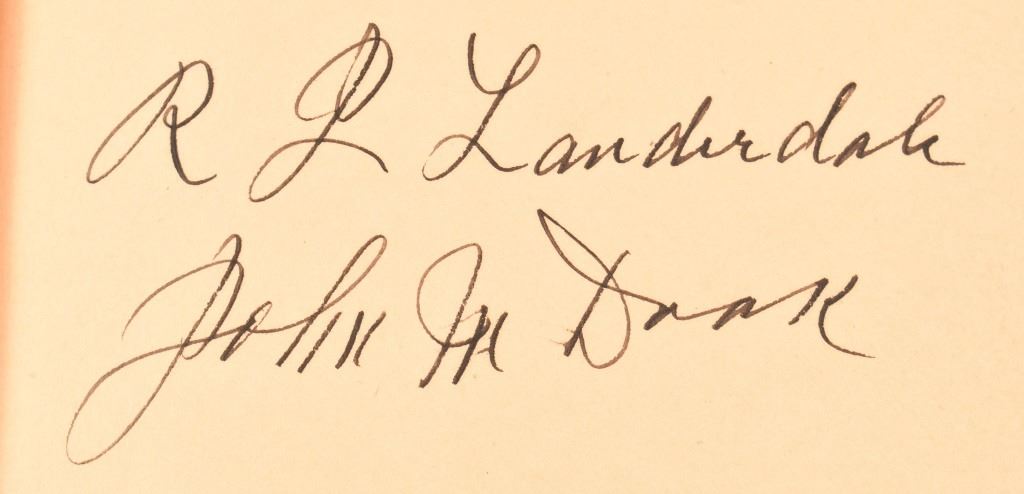 R L Landerdale
John M Doak